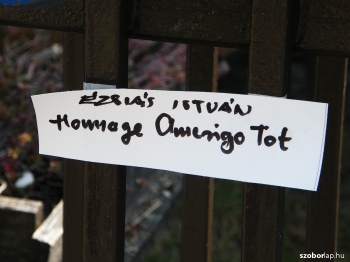 ÉZSIÁS ISTVÁN
Hommage Amerigo Tot
szoborlap.hu